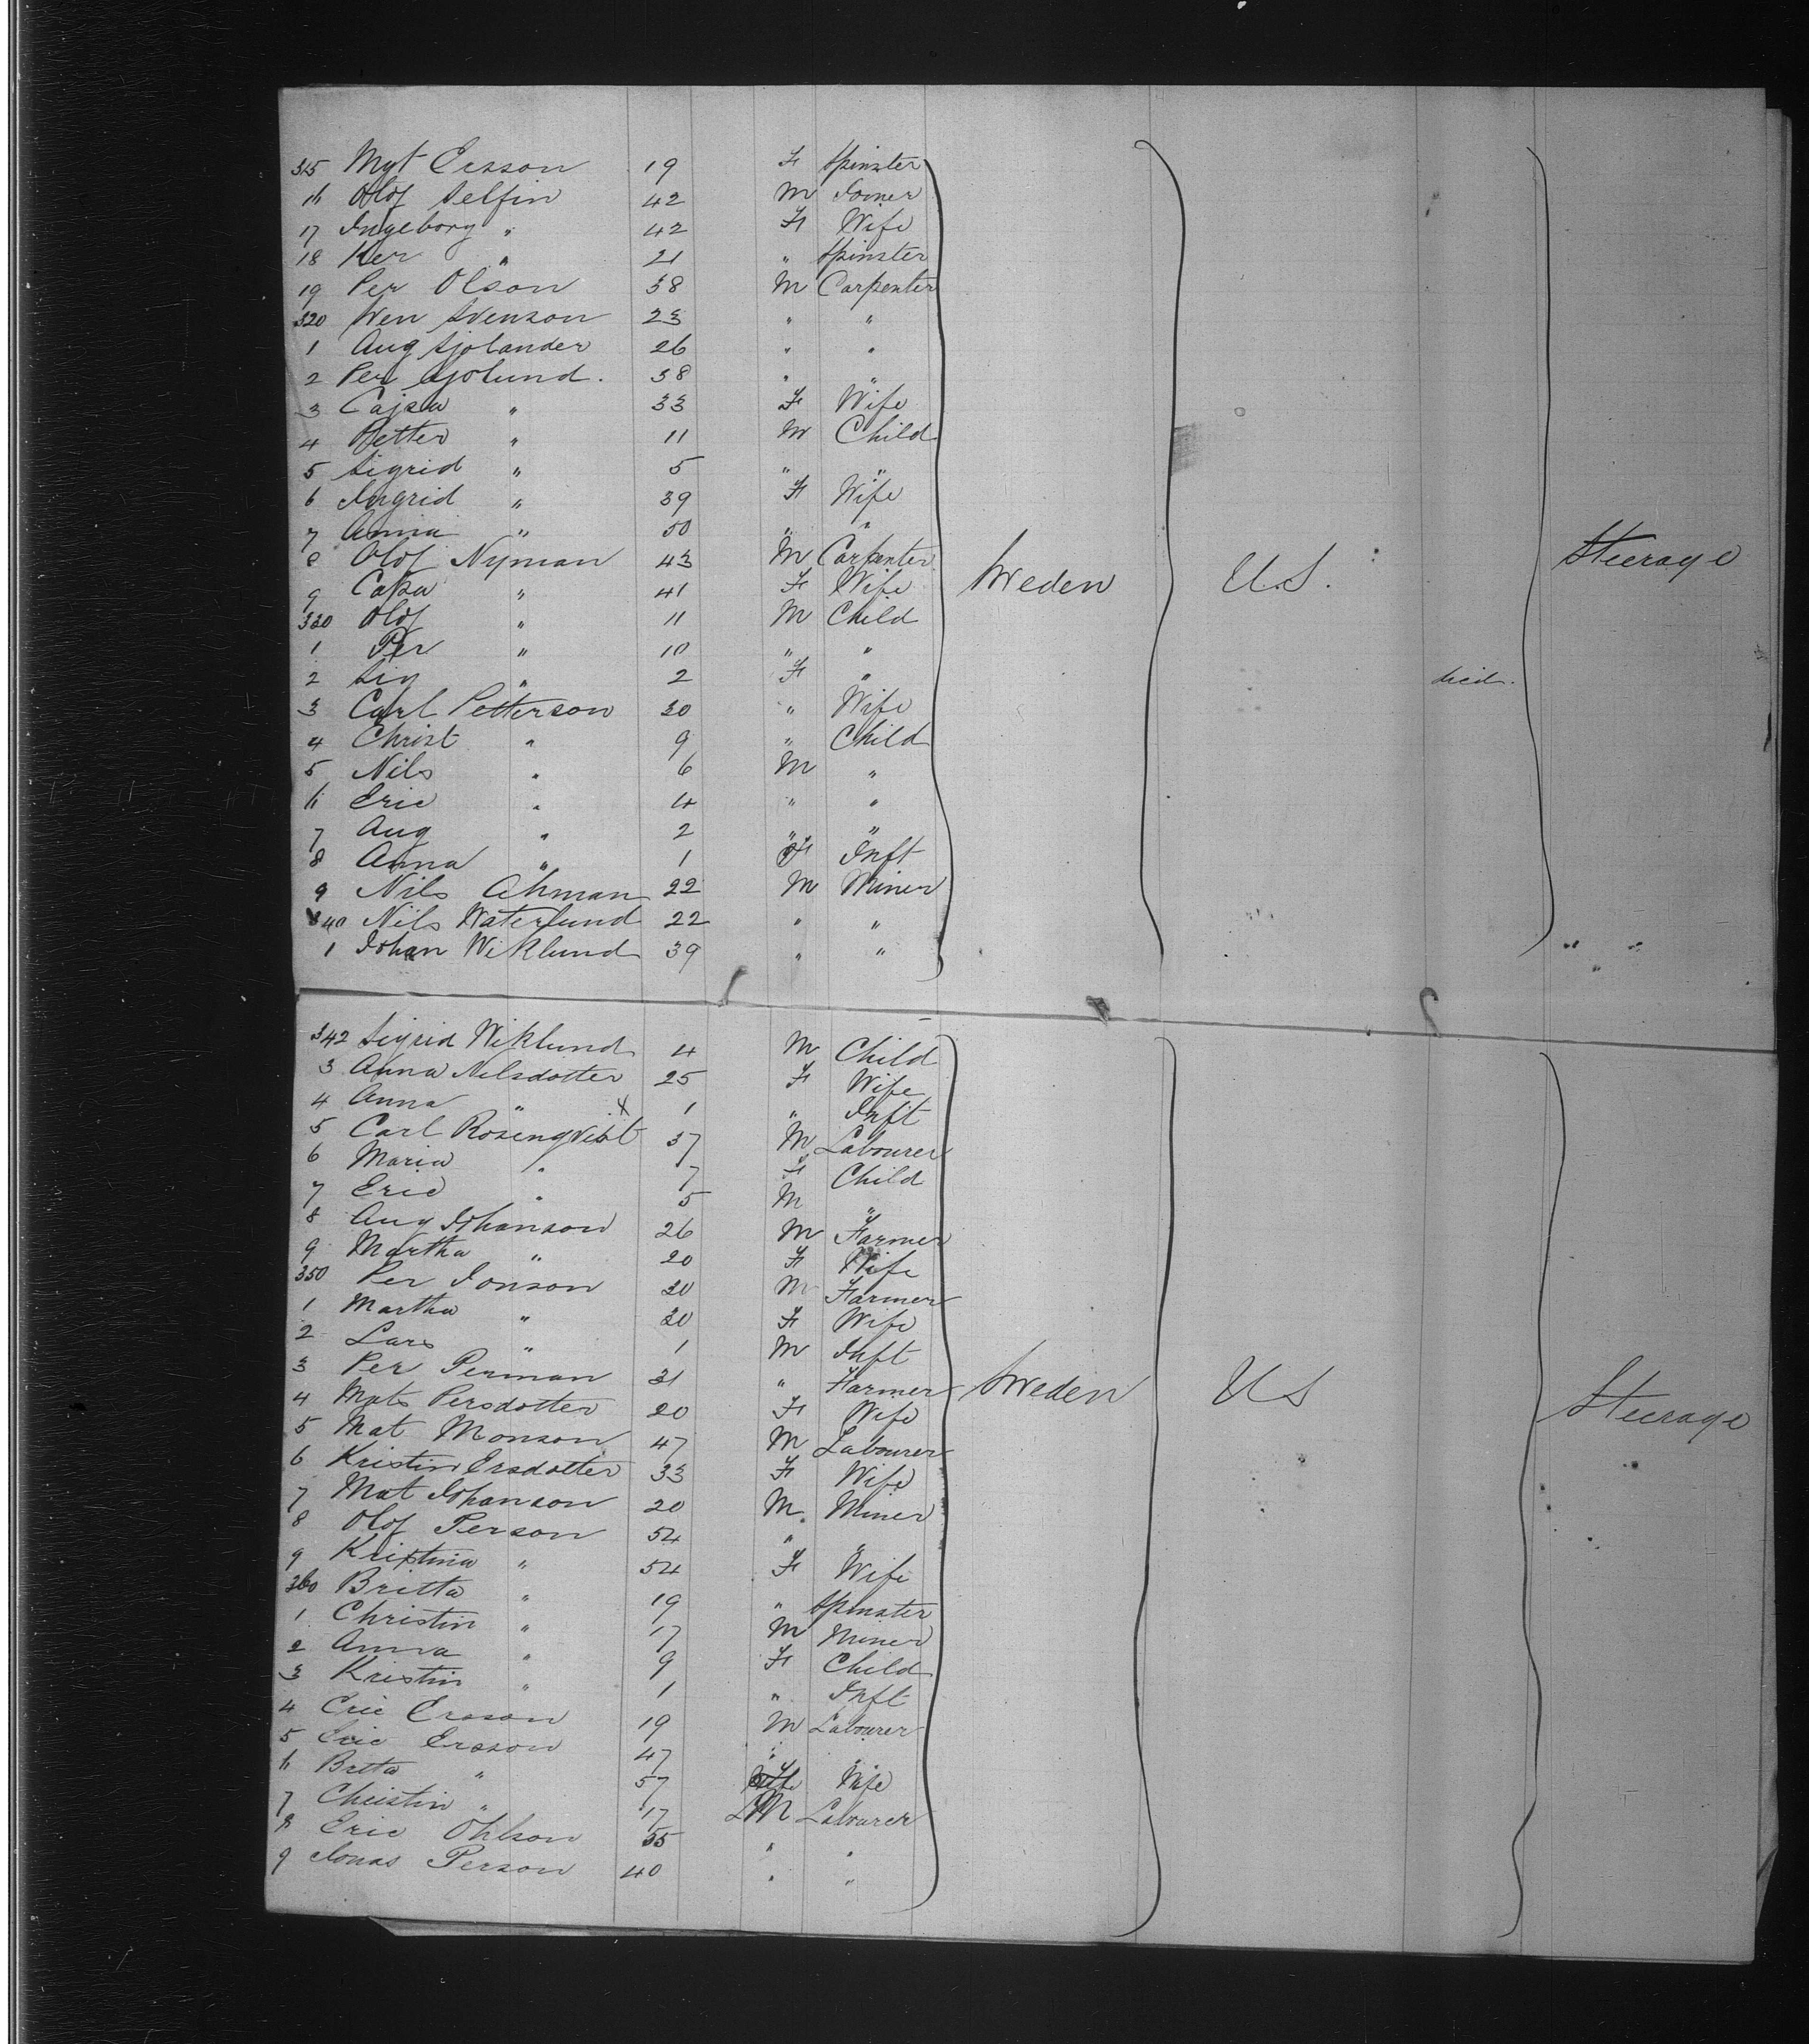 315 Mgt Ersson 19 F Spinster
16 Olof Selfin 42 M Joiner
17 Ingeborg " 42 F Wife
18 Ker " 21 " Spinster
19 Per Olson 38 M Carpenter
320 Wen Svenson 23 " "
1 Aug Sjolander 26 " "
2 Per Sjolund. 38 " "
3 Cajsa " 33 F Wife
4 Petter " 11 M Child
5 Sigrid " 5 " "
6 Ingrid " 39 F Wife
7 Anna " 50 " "
8 Olof Nyman 43 M Carpenter Sweden U.S. Steerage
9 Cajsa " 41 F Wife
330 Olof " 11 M Child
1 Per " 10 " "
2 Sig " 2 F " died.
3 Carl Petterson 30 " Wife
4 Christ " 9 " Child
5 Nils " 6 M "
6 Eric " 4 " "
7 Aug " 2 " "
8 Anna " 1 F Inft
9 Nils Ahman 22 M Miner
340 Nils Waterlund 22 " "
1 Johan Wiklund 39 " " " "
342 Sigrid Wiklund 4 M Child
3 Anna Nilsdotter 25 F Wife
4 Anna " x 1 " Inft
5 Carl Rosengvist 37 M Labourer
6 Maria " 7 F Child
7 Eric " 5 M "
8 Aug Johanson 26 M Farmer
9 Martha " 20 F Wife
350 Per Jonson 20 M Farmer
1 Martha " 20 F Wife
2 Lars " 1 M Inft
3 Per Perman 31 " Farmer Sweden US Steerage
4 Mats Persdotter 20 F Wife
5 Mat Monson 47 M Labourer
6 Kristin Ersdotter 33 F Wife
7 Mat Johanson 20 M. Miner
8 Olof Person 54 " "
9 Kristina " 54 F Wife
360 Britta " 19 " Spinster
1 Christin " 17 M Miner
2 Anna " 9 F Child
3 Kristin " 1 " Inft
4 Eric Ersson 19 M Labourer
5 Eric Ersson 47 " "
6 Breta " 57 F Wife
7 Christin " 17 M Labourer
8 Eric Ohlson 55 " "
9 Jonas Person 40 " "